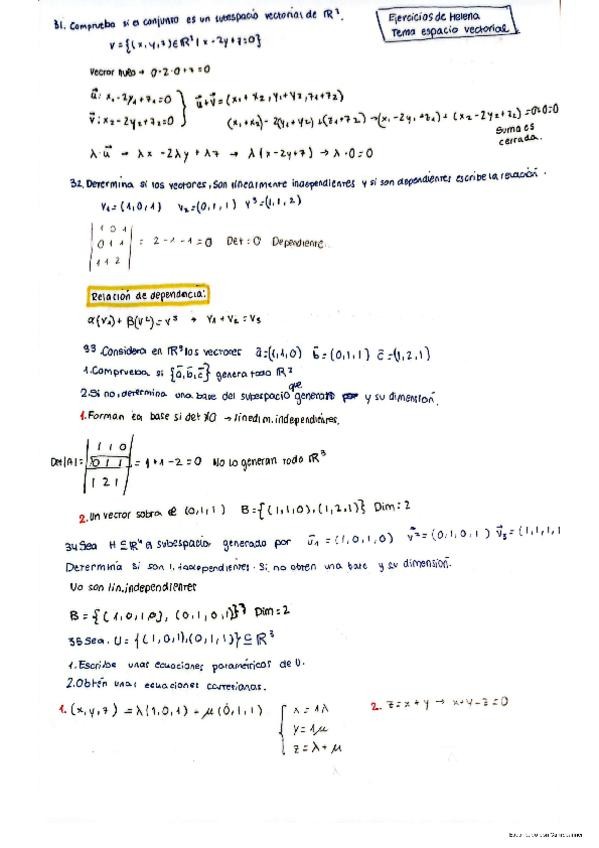 Ejercicios de Helena
Tema espacio vectorial
31. Comprueba si el conjunto es un subespacio vectorial de ℝ³.
V={(x,y,z)∈ℝ³ | x-2y+z=0}
Vector nulo → 0-2·0+0=0
u⃗: x₁-2y₁+z₁=0
v⃗: x₂-2y₂+z₂=0
u⃗+v⃗=(x₁+x₂, y₁+y₂, z₁+z₂)
(x₁+x₂)-2(y₁+y₂)+(z₁+z₂) → (x₁-2y₁+z₁)+(x₂-2y₂+z₂)=0+0=0
Suma es cerrada.
λ·u⃗ → λx-2λy+λz → λ(x-2y+z) → λ·0=0
32. Determina si los vectores, son linealmente independientes y si son dependientes escribe la relación.
V₁=(1,0,1) V₂=(0,1,1) V³=(1,1,2)
|1 0 1|
|0 1 1| = 2-1-1=0 Det=0 Dependiente.
|1 1 2|
Relación de dependencia:
α(V₁)+β(V²)=V³ → V₁+V₂=V₃
33. Considera en ℝ³ los vectores a⃗=(1,1,0) b⃗=(0,1,1) c⃗=(1,2,1)
1. Comprueba si {a⃗,b⃗,c⃗} genera todo ℝ³
2. Si no, determina una base del subespacio que generan y su dimensión.
1. Forman la base si det≠0 →
independientes.
Det|A|=
|1 1 0|
|0 1 1| = 1+1-2=0 No lo generan todo ℝ³
|1 2 1|
2. Un vector sobra (0,1,1) B={(1,1,0),(1,2,1)} Dim:2
34 Sea H⊆ℝ⁴ el subespacio generado por v⃗₁=(1,0,1,0) v⃗²=(0,1,0,1) v⃗₃=(1,1,1,1
Determina si son l. independientes. Si no obten una base y su dimensión.
No son lin. independientes
B={(1,0,1,0), (0,1,0,1)} Dim=2
35 Sea. U={(1,0,1),(0,1,1)}⊆ℝ³
1. Escribe unas ecuaciones paramétricas de U.
2. Obtén unas ecuaciones cartesianas.
1. (x,y,z)=λ(1,0,1)+μ(0,1,1)
x=1λ
y=1μ
z=λ+μ
2. z=x+y → x+y-z=0